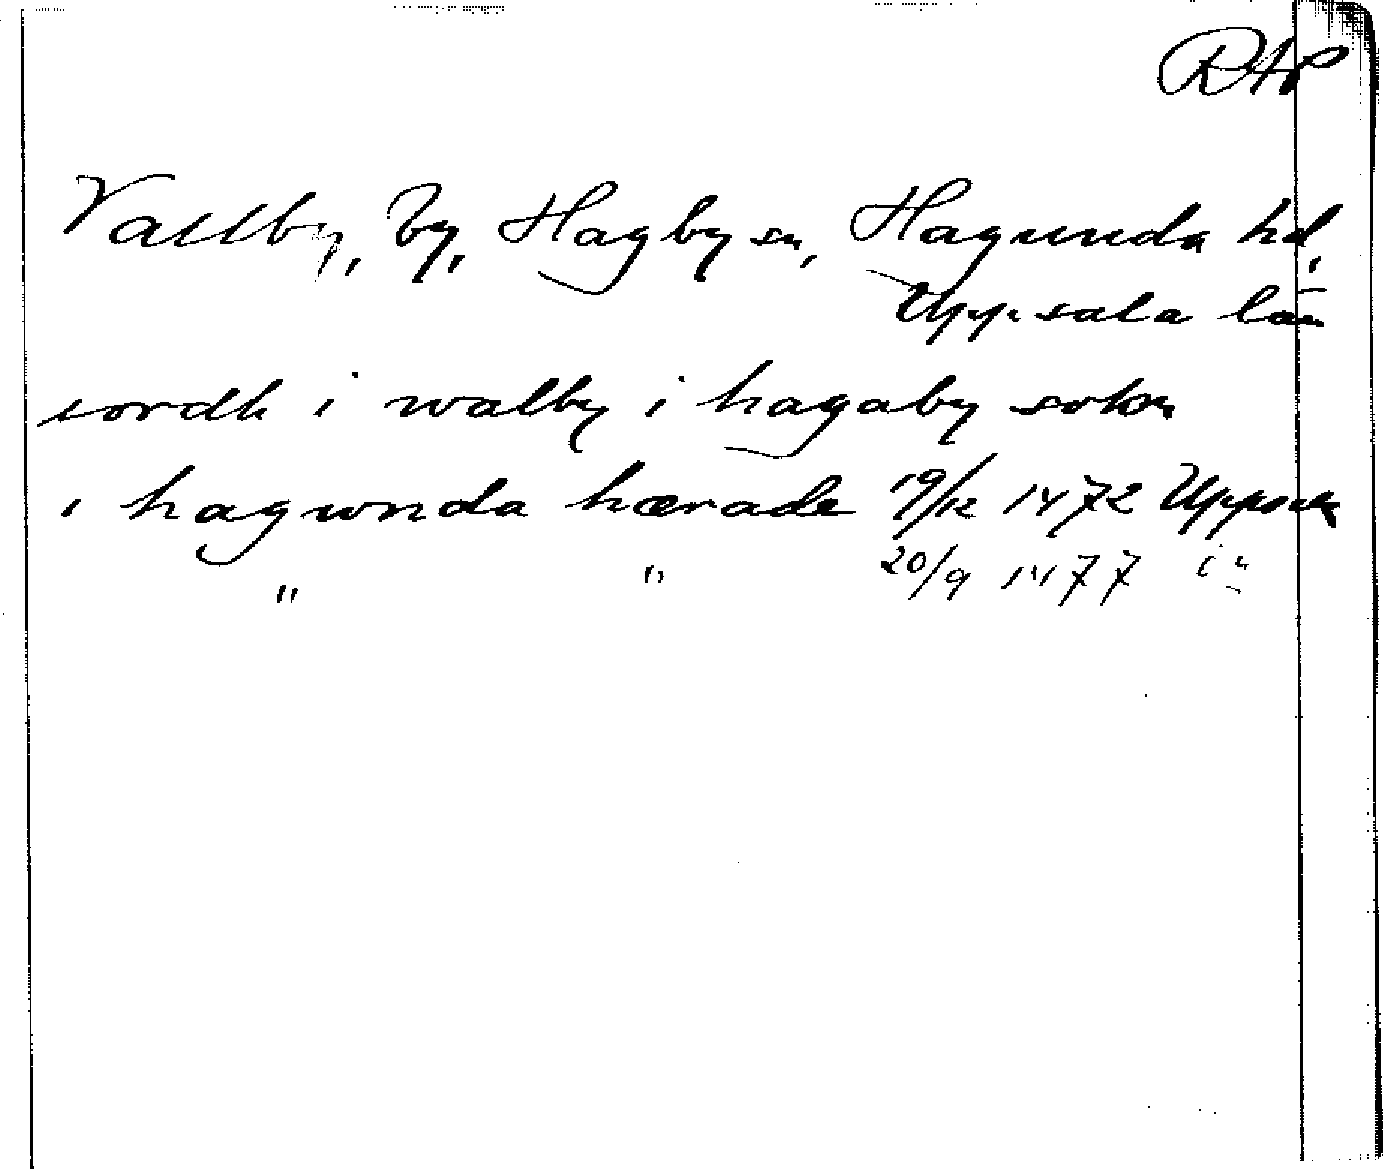 RAP
Vallby, by, Hagby sn, Hagunda hd,
Uppsala län
iordh i walby i hagaby sokn
i hagwnda hærade 19/12 1472 Uppsala
" " 20/9 1477 i "